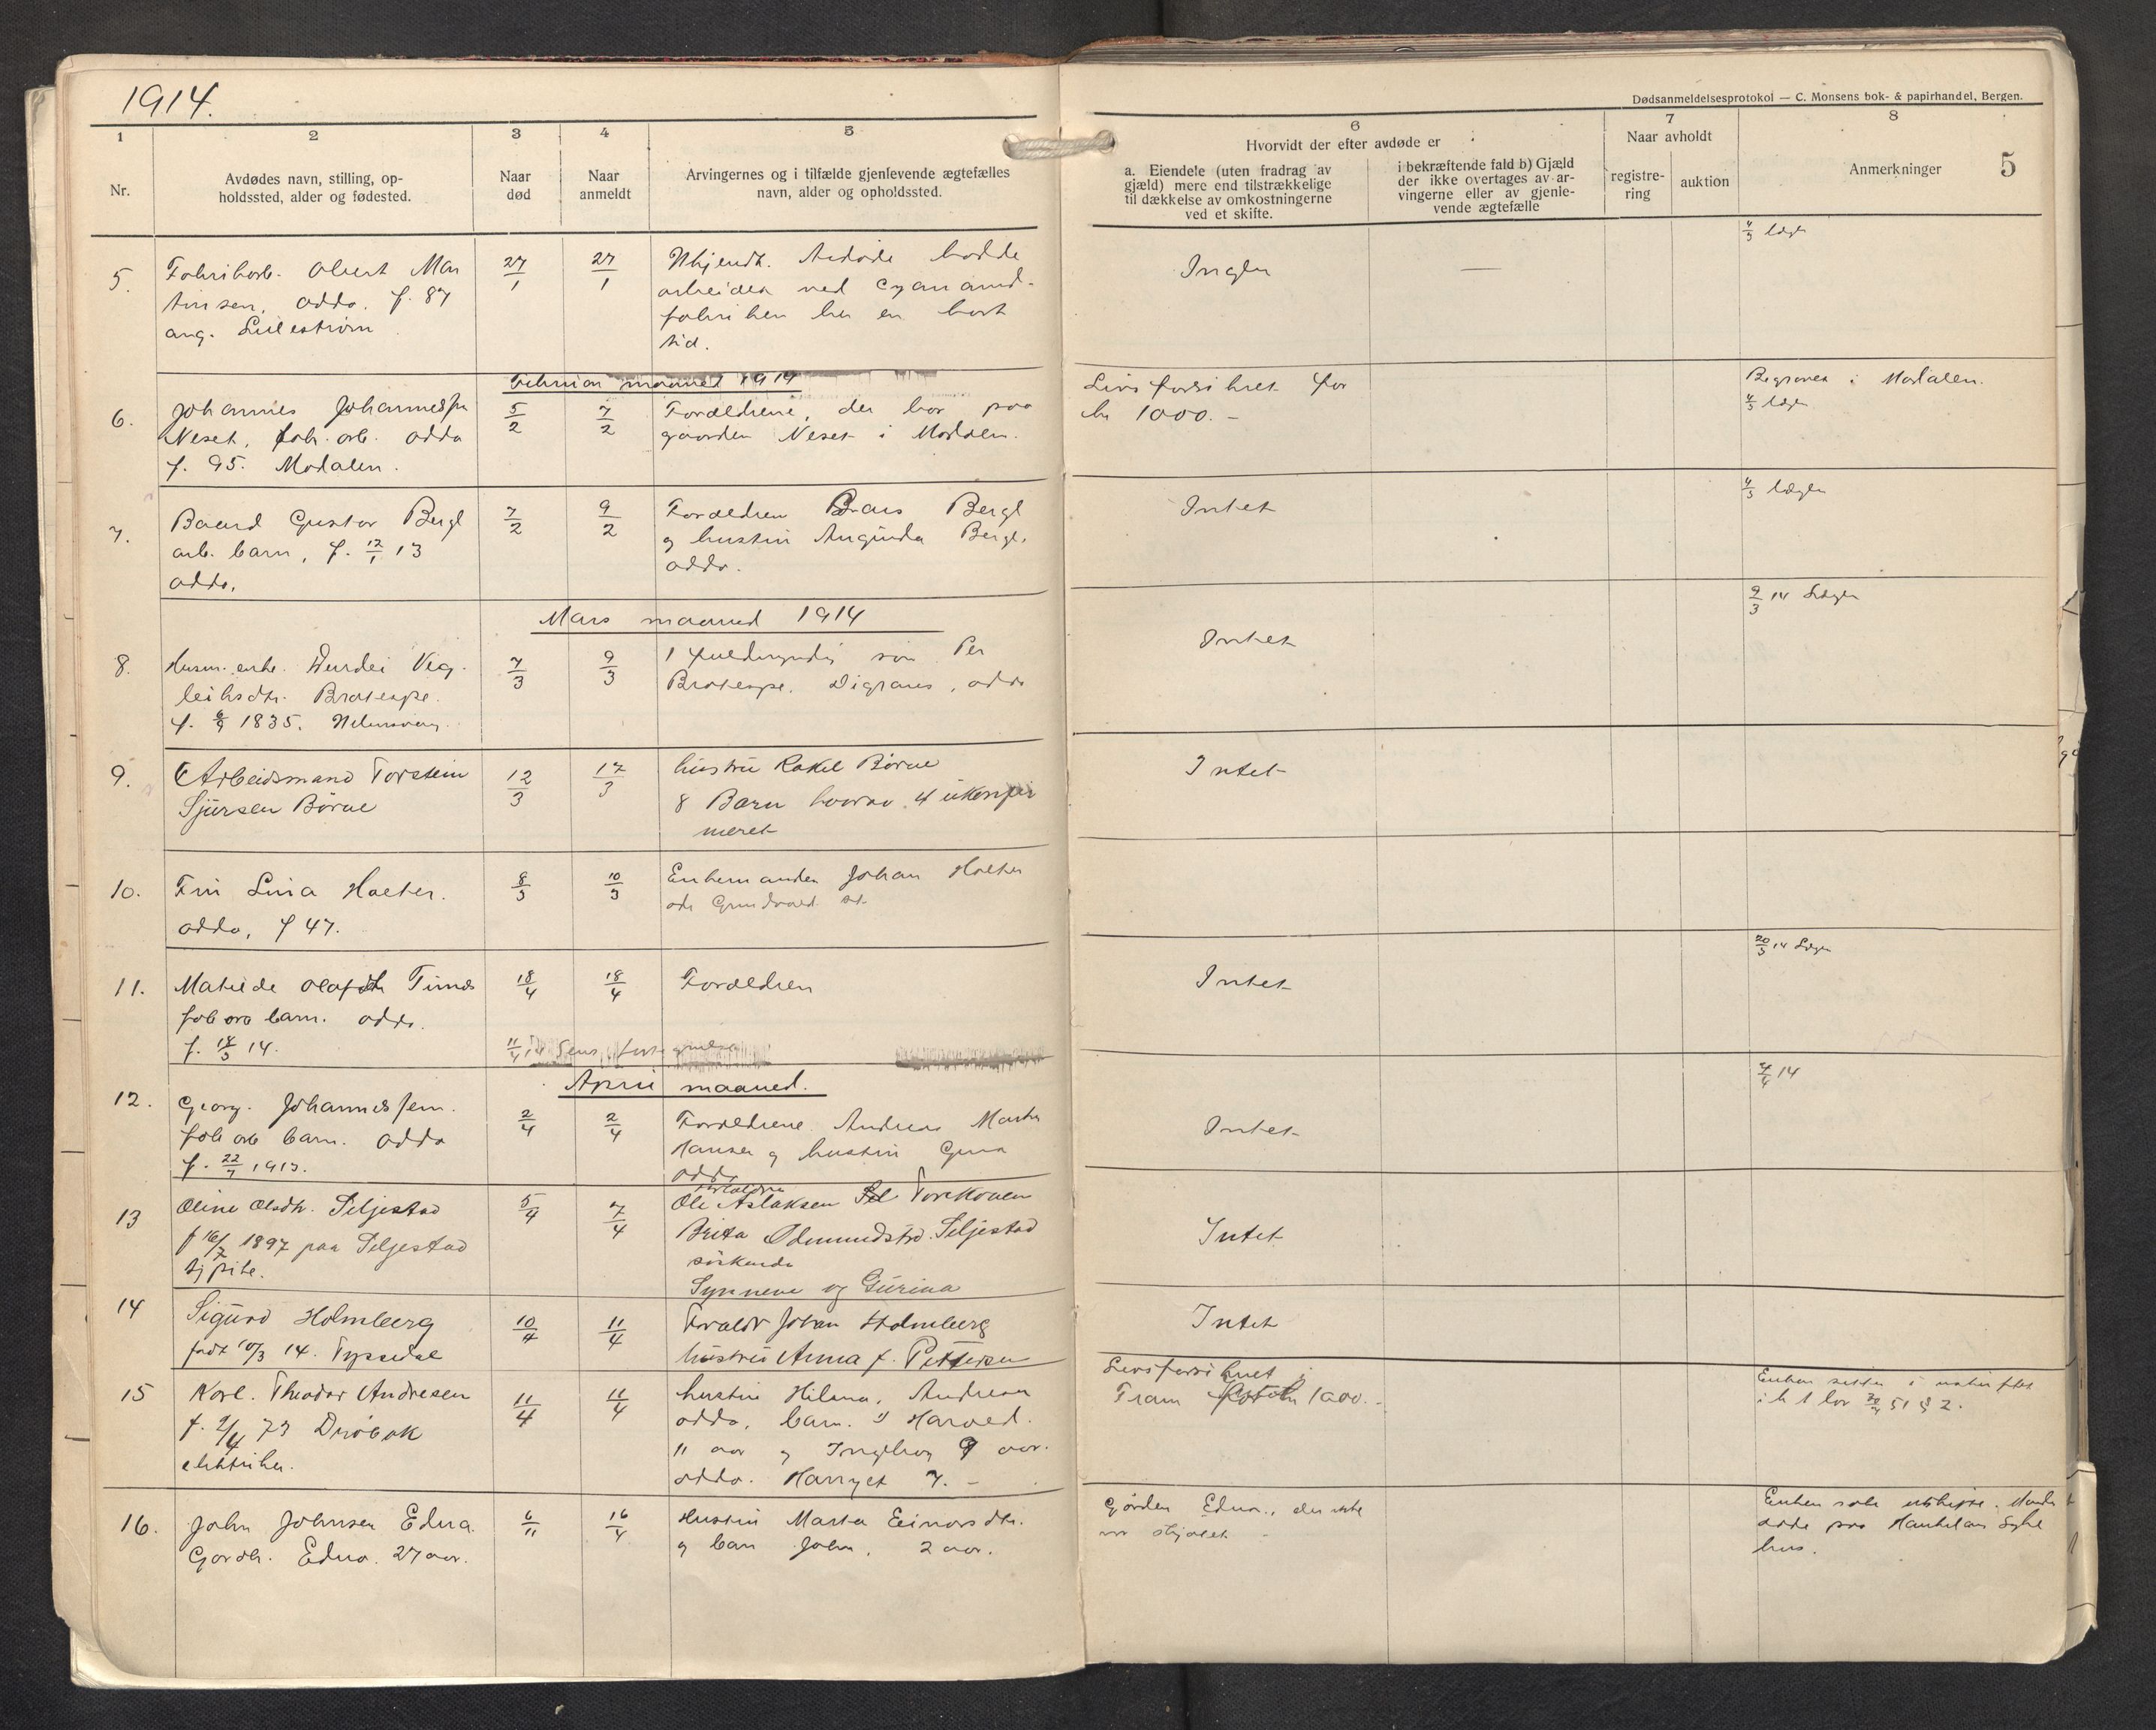 1914.
Dødsanmeldelsesprotokol — C. Monsens bok- & papirhandel, Bergen.
1
2
3
4
5
6
7
8
Nr.
Avdødes navn, stilling, op-
holdssted, alder og fødested.
Naar
død
Naar
anmeldt
Arvingernes og i tilfælde gjenlevende ægtefælles
navn, alder og opholdssted.
Hvorvidt der efter avdøde er
a. Eiendele (uten fradrag av
gjæld) mere end tilstrækkelige
til dækkelse av omkostningerne
ved et skifte.
i bekræftende fald b) Gjæld
der ikke overtages av ar-
vingerne eller av gjenle-
vende ægtefælle
Naar avholdt
registre-
ring
auktion
Anmerkninger
5
5.
Fabrikarb. Olert Mar
tinsen, Odda. f. 87
ang. Lillestrøm
27/1
27/1
Ukjendt. Avdøde hadde
arbeidet ved Cyanamid-
fabriken her en kort
tid.
Ingen
—
Februar maaned 1914
6.
Johannes Johannessen
Neset, fabr. arb. Odda
f. 95. Modalen.
5/2
7/2
Forældrene, der bor paa
gaarden Neset i Modalen.
Livsforsikret for
kr 1000.-
Begravet i Modalen.
7.
Baard Gustav Bergl
arb. barn, f. 12/1 13
Odda.
7/2
9/2
Forældren Lars Bergl
og hustru Auginda Bergl.
Odda.
Intet
Mars maaned 1914
8.
Husm. enke. Durdei Veg-
leiksdtr. Bratespe.
f. 1835.
7/3
9/3
1 fuldmyndig søn Per
Bratespe. Digranes, Odda
Intet
9/3 14 Lægen
9.
Arbeidsmand Torstein
Sjursen Børve
12/3
17/3
hustru Rakel Børve
8 Barn hvorav 4 ukonfir
meret
Intet
10.
Fru Lina Holter.
Odda, f 47.
8/3
10/3
Enkemanden Johan Holter
Intet
11.
Matilde Olafsdtr
fab arb barn. Odda.
f. 18/3 14.
18/4
18/4
Forældren
20/3 14 Lægen
April maaned.
12.
Georg. Johannessen.
fab arb barn. Odda
f. 22/7 1913.
2/4
2/4
Forældrene Andreas Martin
Hansen og hustru Gina
Odda
Intet
7/4 14
13
Oline Olsdtr. Seljestad
f 16/7 1897 paa Seljestad
tj pike.
5/4
7/4
Forældre
Ole Aslaksen
Brita Odmundstd. Seljestad
søskende
Synneve og Gurina
Intet
14
Sigurd Holmberg
født 10/3 14. Tyssedal
10/4
11/4
Forældr Johan Holmberg
hustru Anna f. Pettersen
Intet
15
Karl. Theodor Andresen
f. 2/4 73 Drøbak
elektriker.
11/4
11/4
hustru Hilma, Andresen
Odda, barn. 1) Harald.
11 aar og Ingeborg 9 aar.
Odda. Harryet 7.-
Livsforsikret i
Fram 1000.-
Enken sitter i uskiftet
51 § 2.
16.
John Johnsen Edna.
Gardbr. Edna. 27 aar.
6/11
16/4
Hustru Marta Einarsdtr.
og barn John, 2 aar.
Gaarden Edna., der ikke
er skjøtet -
Enken
døde paa Haukeland Syke
hus.